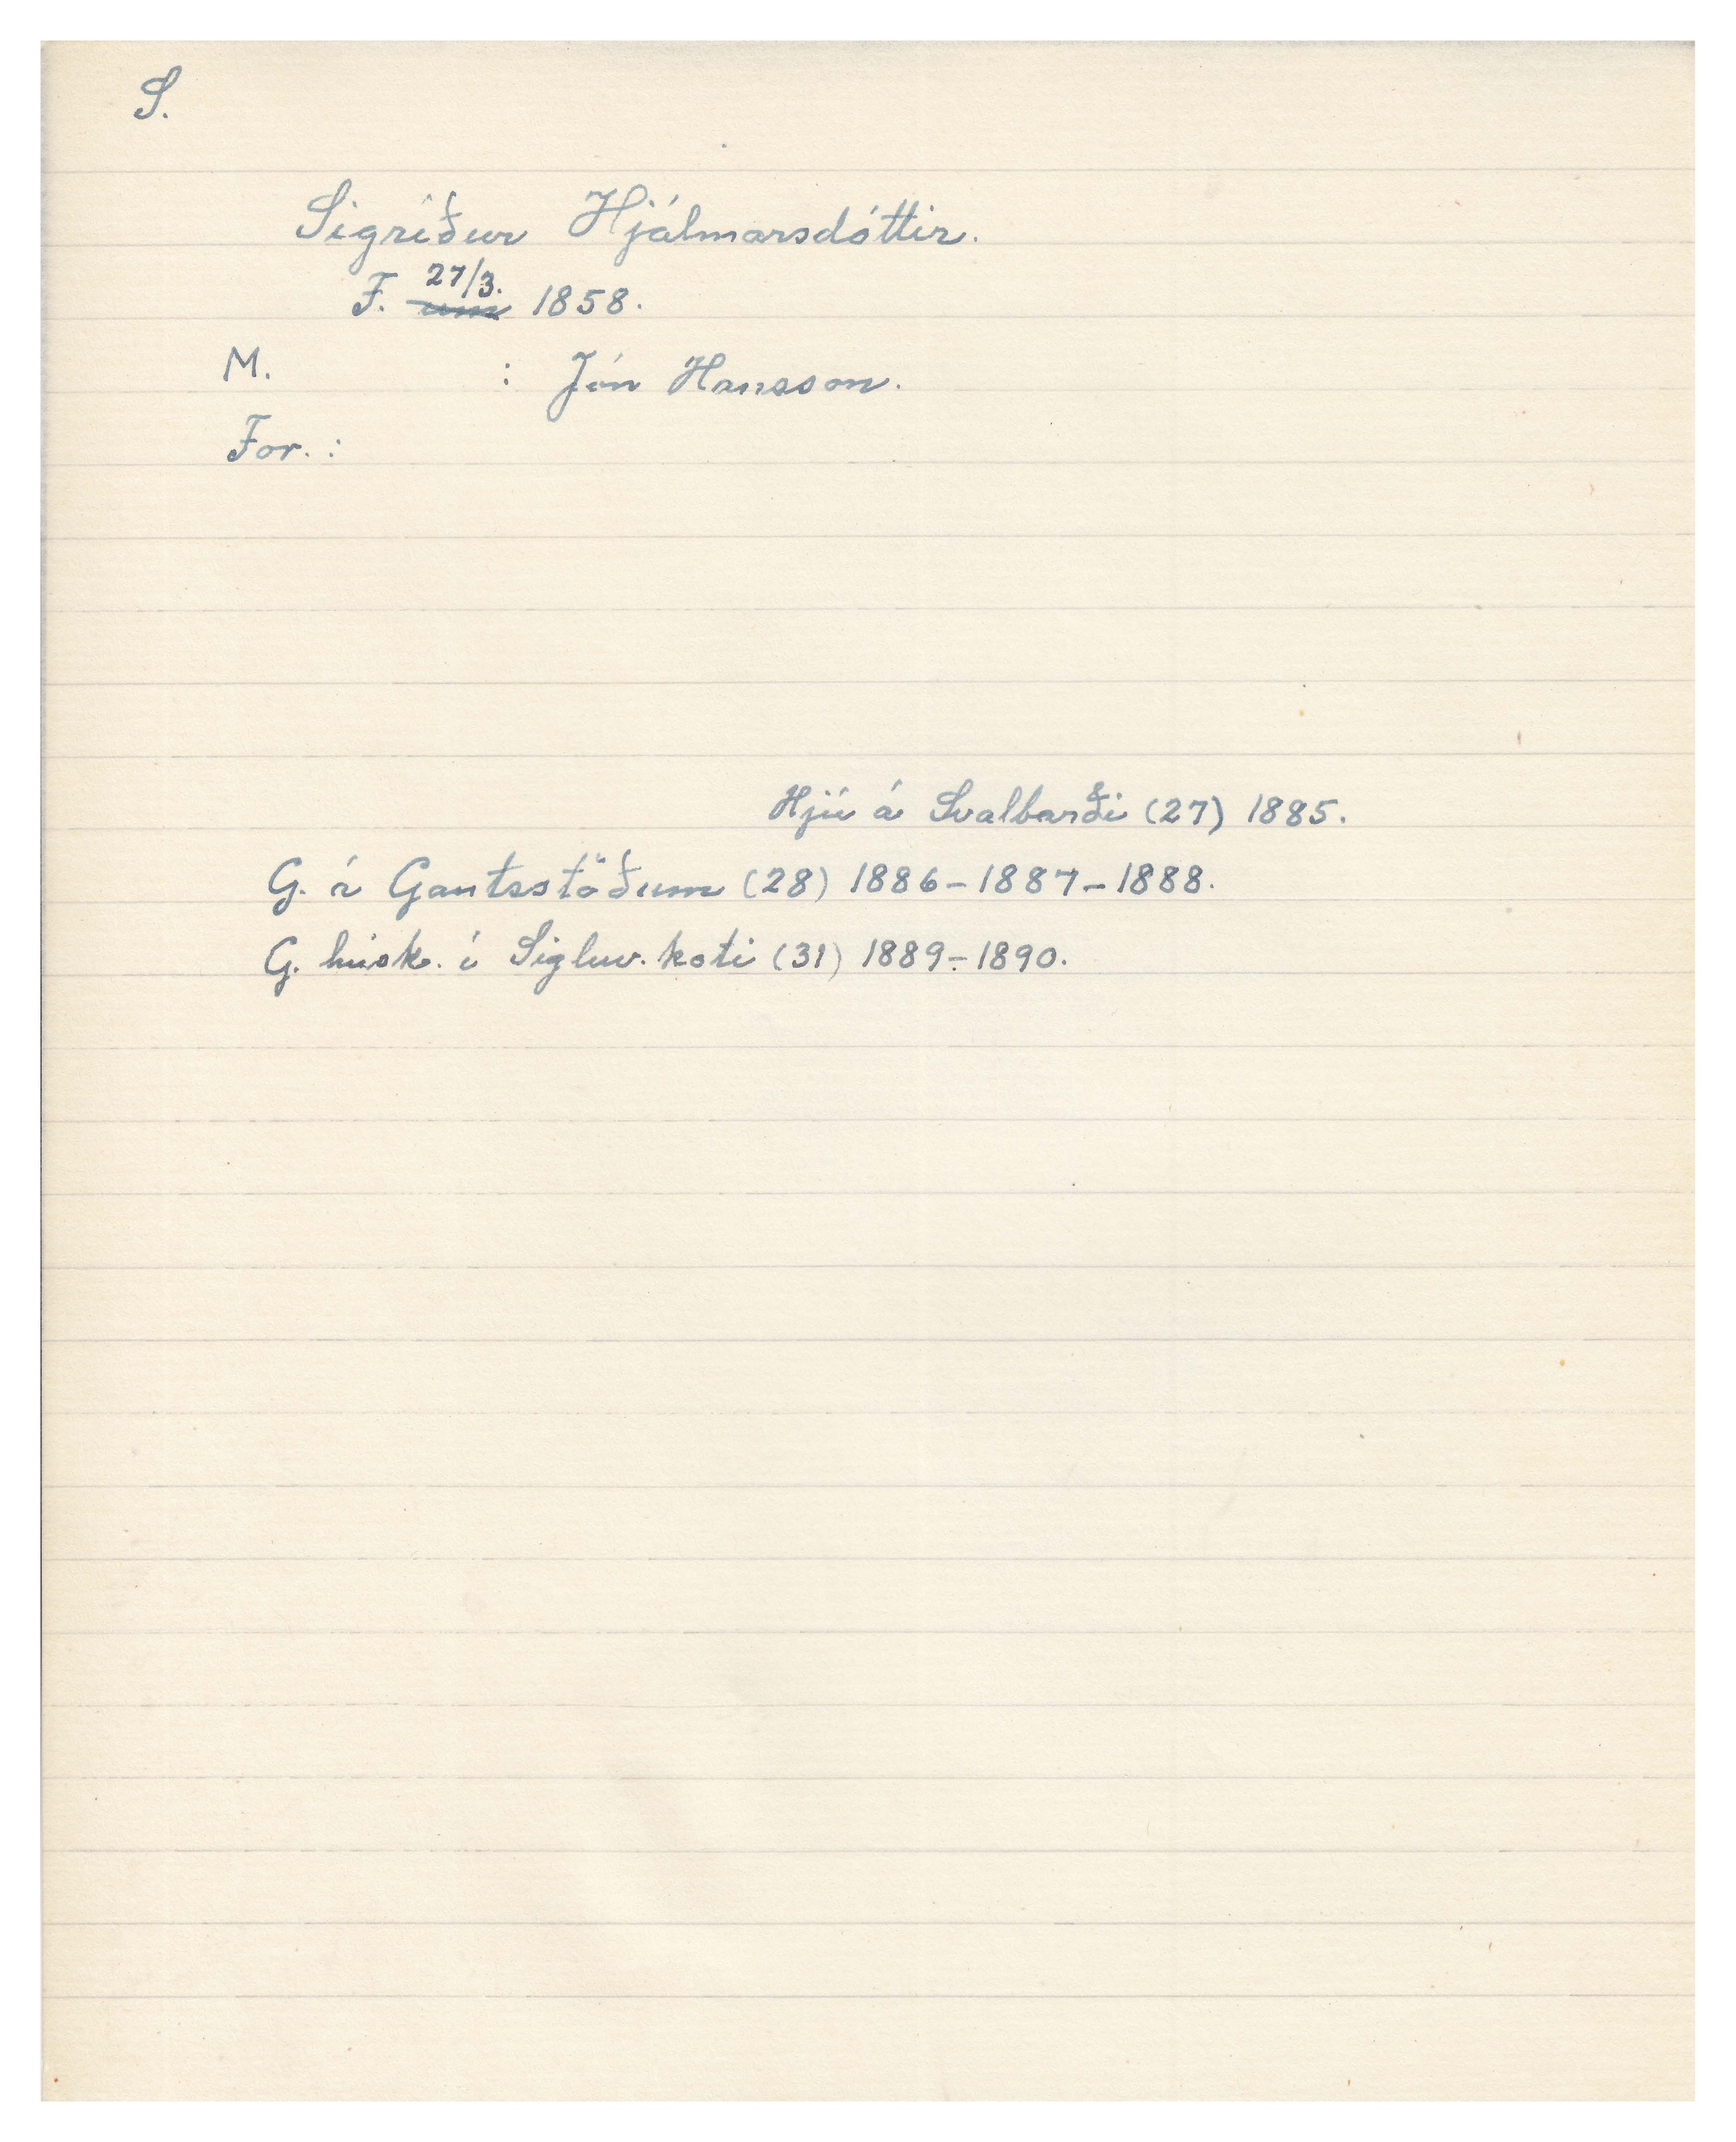 S.
Sigríður Hjálmarsdóttir.
F. 27/3. 1858.
M. : Jón Hansson.
For. :
Hjú á Svalbarði (27) 1885.
G. á Gautsstöðum (28) 1886-1887-1888.
G. húsk. í Sigluv. koti (31) 1889-1890.